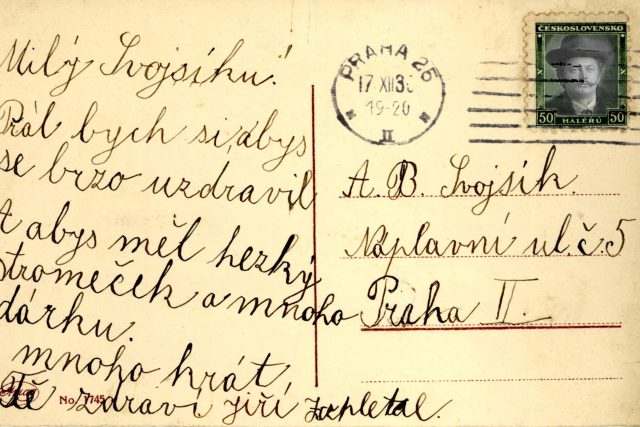 Milý Svojsíku!
Přál bych si, abys
se brzo uzdravil
A abys měl hezký
stromeček a mnoho
dárku.
mnoho krát
Tě zdraví Jiří Zapletal.
No 7745
PRAHA 25
17 XII 3
19-20
II
ČESKOSLOVENSKO
50 HALÉŘŮ 50
A. B. Svojsík.
Náplavní ul. č 5
Praha II.